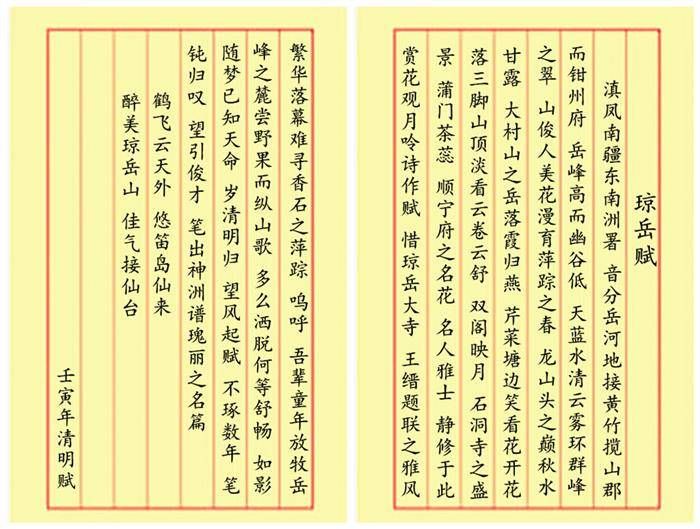 琼岳赋
滇凤南疆东南洲署 音分岳河地接黄竹揽山郡
而钳州府 岳峰高而幽谷低 天蓝水清云雾环群峰
之翠 山俊人美花漫育萍踪之春 龙山头之巅秋水
甘露 大村山之岳落霞归燕 芹菜塘边笑看花开花
落三脚山顶淡看云卷云舒 双阁映月 石洞寺之盛
景 蒲门茶蕊 顺宁府之名花 名人雅士 静修于此
赏花观月呤诗作赋 惜琼岳大寺 王缙题联之雅风
繁华落幕难寻香石之萍踪 呜呼 吾辈童年放牧岳
峰之麓尝野果而纵山歌 多么洒脱何等舒畅 如影
随梦已知天命 岁清明归 望风起赋 不琢数年 笔
钝归叹 望引俊才 笔出神洲谱瑰丽之名篇
鹤飞云天外 悠笛岛仙来
醉美琼岳山 佳气接仙台
壬寅年清明赋